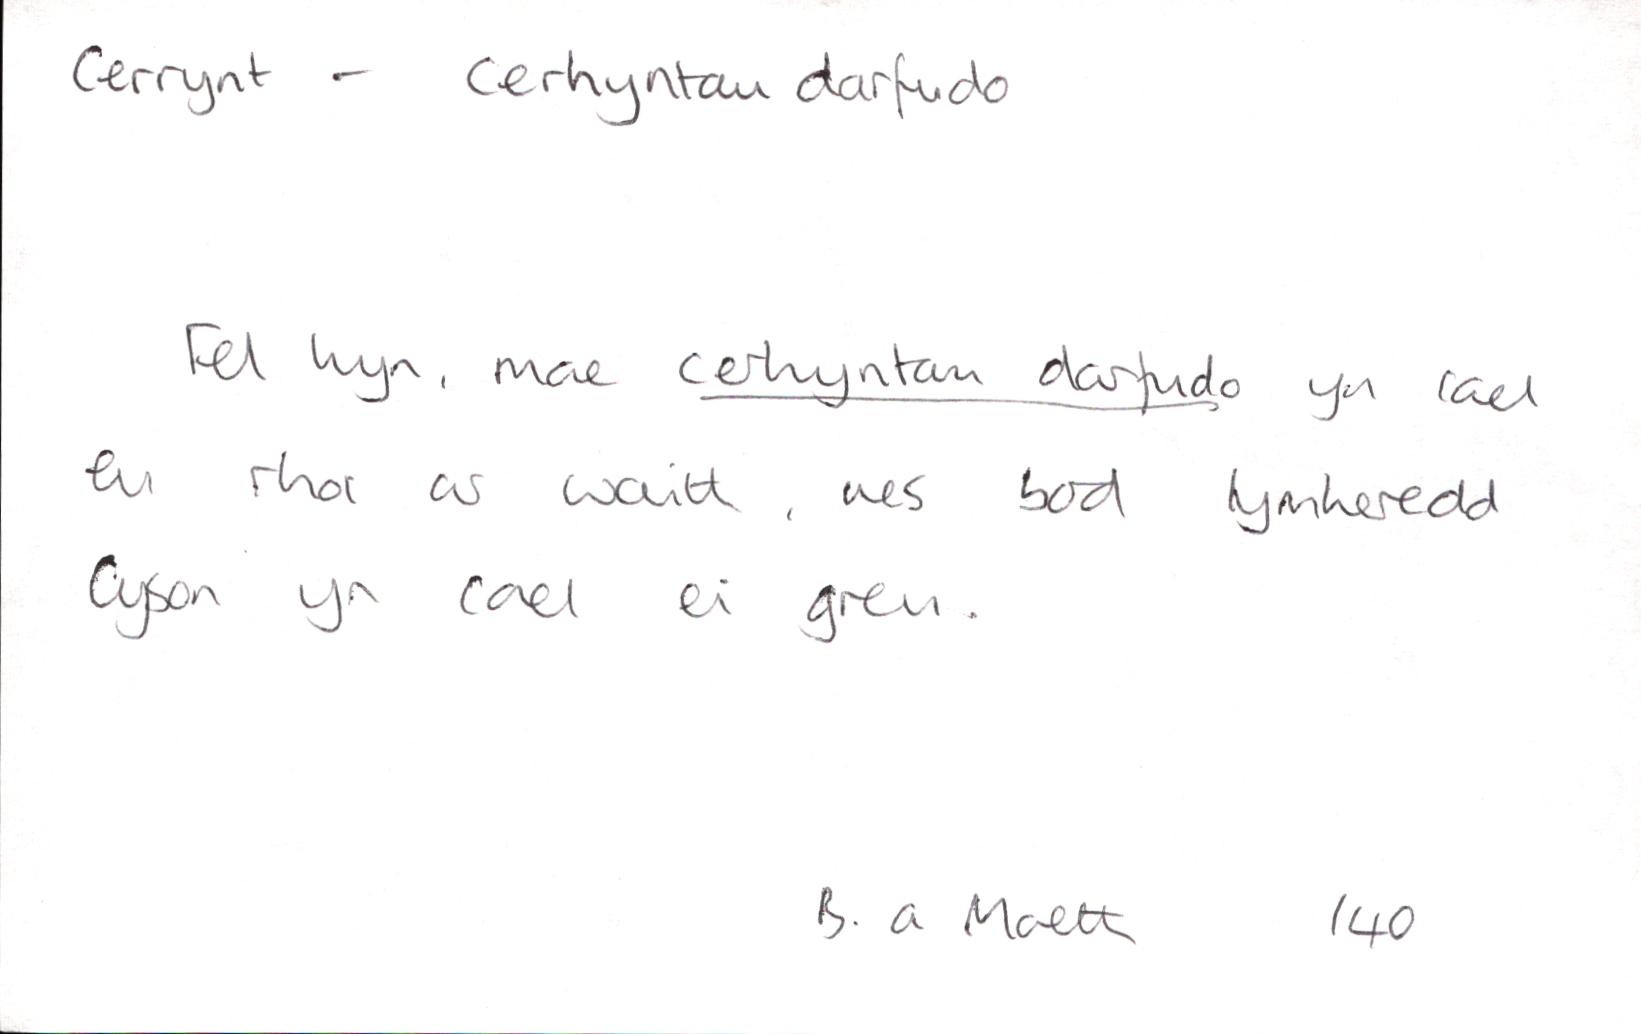 Cerrynt - cerhyntau darfudo
Fel hyn, mae cerhyntau darfudo yn cael
eu rhoi ar waith, nes bod tymheredd
Cyson yn cael ei greu.
B. a Maeth 140